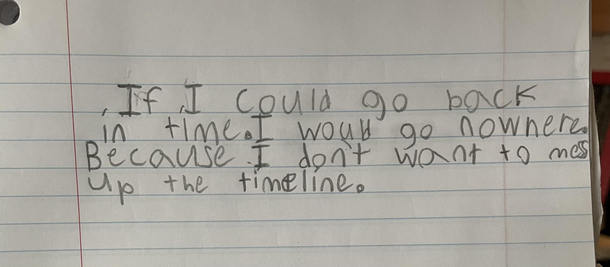 If I could go back
in time. I would go nowhere.
Because I don't want to mess
up the timeline.